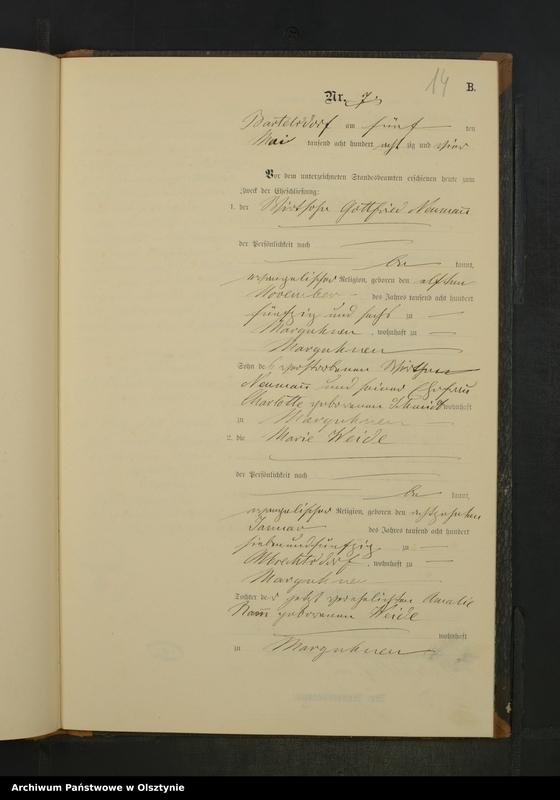 14
B.
Nr. 7.
Bartelsdorf am fünf ten
Mai tausend acht hundert acht zig und vier
Vor dem unterzeichneten Standesbeamten erschienen heute zum
Zweck der Eheschließung:
1. der Wirthsohn Gottfried Neumann
der Persönlichkeit nach
be kannt,
evangelischer Religion, geboren den elften
November des Jahres tausend acht hundert
fünfzig und sechs zu
Marguhnen, wohnhaft zu
Marguhnen
Sohn des verstorbenen Wirthen
Neumann und seiner Ehefrau
Charlotte geborenen Schmidt wohnhaft
zu Marguhnen
2. die Marie Weide
der Persönlichkeit nach
be kannt,
evangelischer Religion, geboren den achtzehnten
Januar des Jahres tausend acht hundert
siebenundfünfzig zu
Albrechtsdorf, wohnhaft zu
Marguhnen
Tochter der jetzt verehelichten Amalie
geborenen Weide
wohnhaft
zu Marguhnen
Archiwum Państwowe w Olsztynie